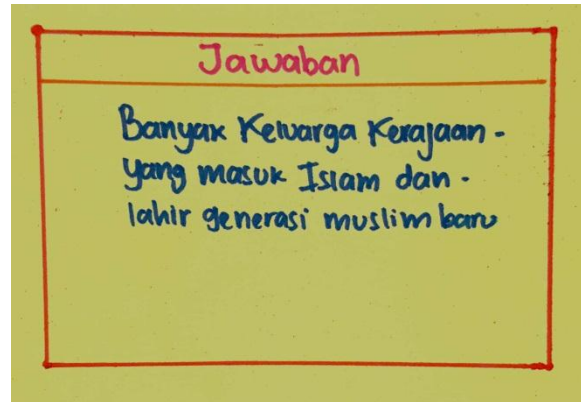 Jawaban
Banyak Keluarga Kerajaan -
yang masuk Islam dan -
lahir generasi muslim baru